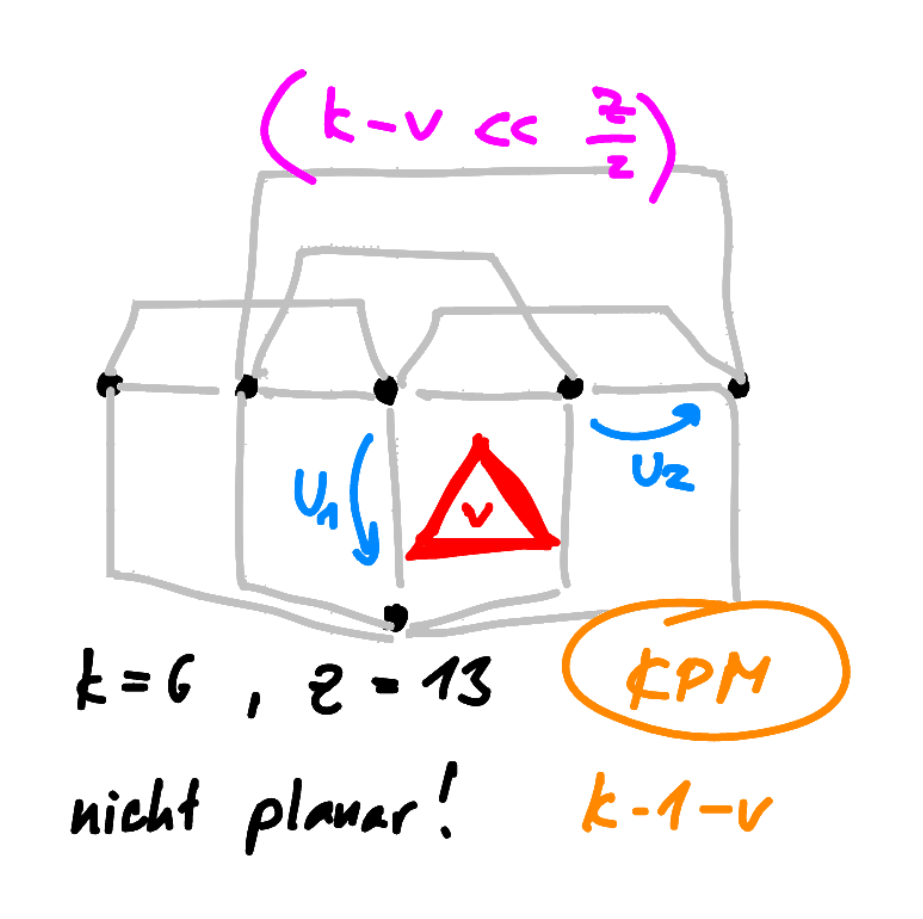 (k-v << z/z)
U1
v
U2
k=6, z=13
KPM
nicht planar!
k-1-v